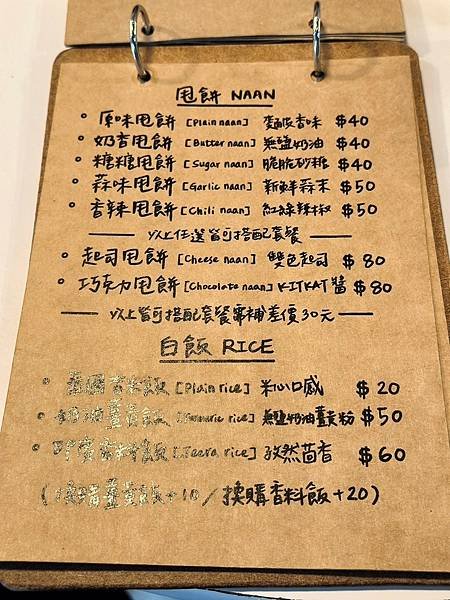 甩餅 NAAN
原味甩餅 [Plain naan] 麵皮香味 $40
奶香甩餅 [Butter naan] 無鹽奶油 $40
糖糖甩餅 [Sugar naan] 脆脆砂糖 $40
蒜味甩餅 [Garlic naan] 新鮮蒜末 $50
香辣甩餅 [Chili naan] 紅綠辣椒 $50
以上任選皆可搭配套餐
起司甩餅 [Cheese naan] 雙色起司 $80
巧克力甩餅 [Chocolate naan] KITKAT醬 $80
以上皆可搭配套餐需補差價30元
白飯 RICE
泰國香米飯 [Plain rice] 米心口感 $20
奶油薑黃飯 [Tumeric rice] 無鹽奶油薑黃粉 $50
香料飯 [Jeera rice] 孜然茴香 $60
(換購薑黃飯+10/換購香料飯+20)